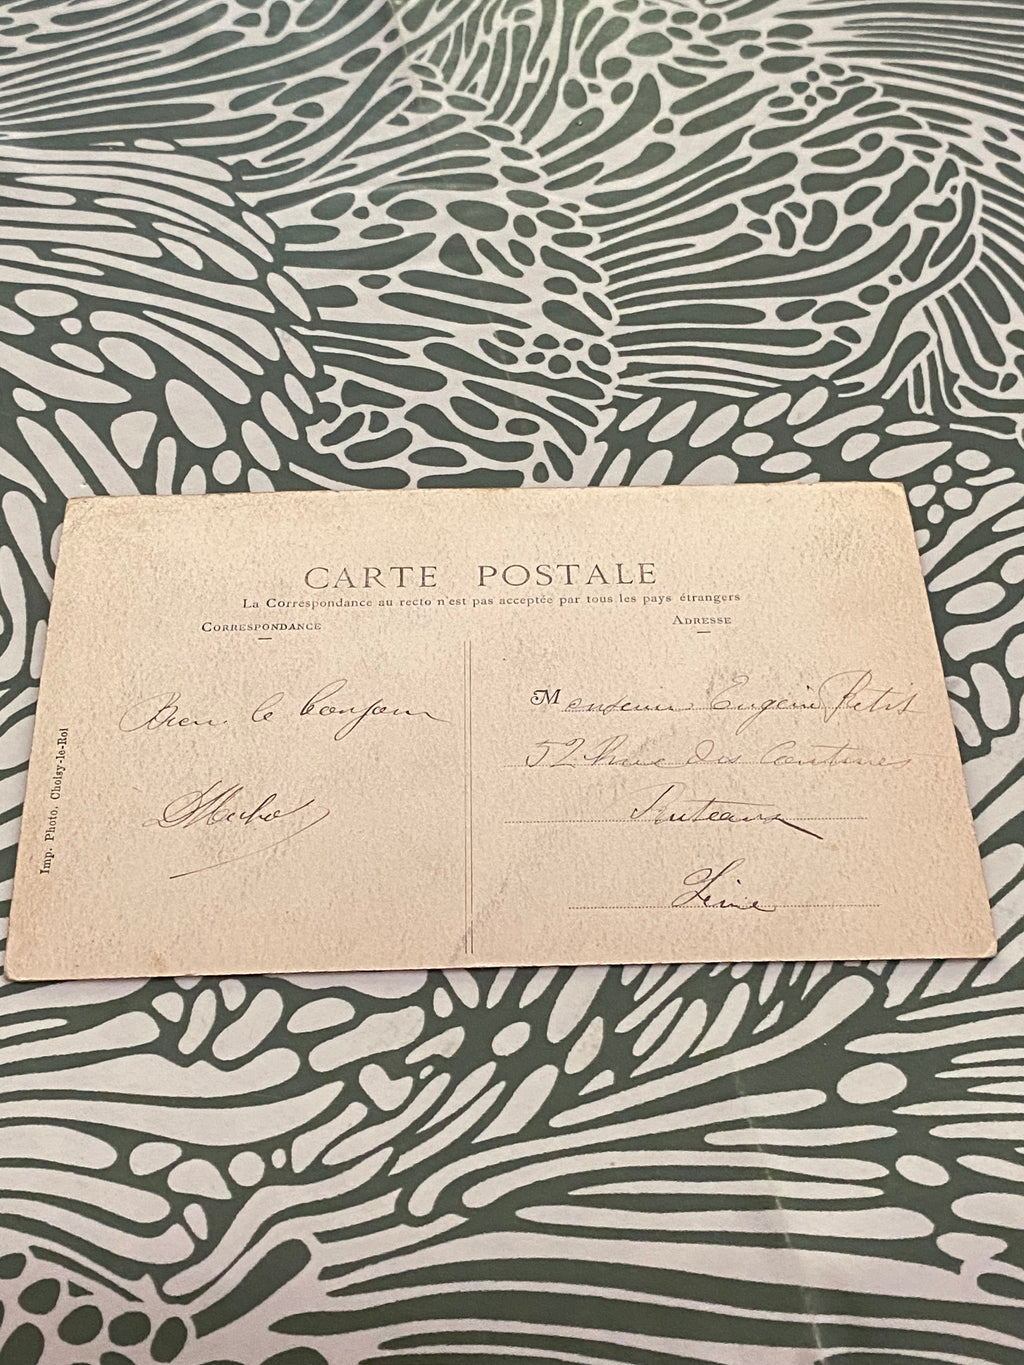 CARTE POSTALE
La Correspondance au recto n'est pas acceptée par tous les pays étrangers
CORRESPONDANCE
ADRESSE
Bien le bonjour
Monsieur Eugène Petit
52 Rue des
Puteaux
Seine
Imp. Photo. Choisy-le-Roi